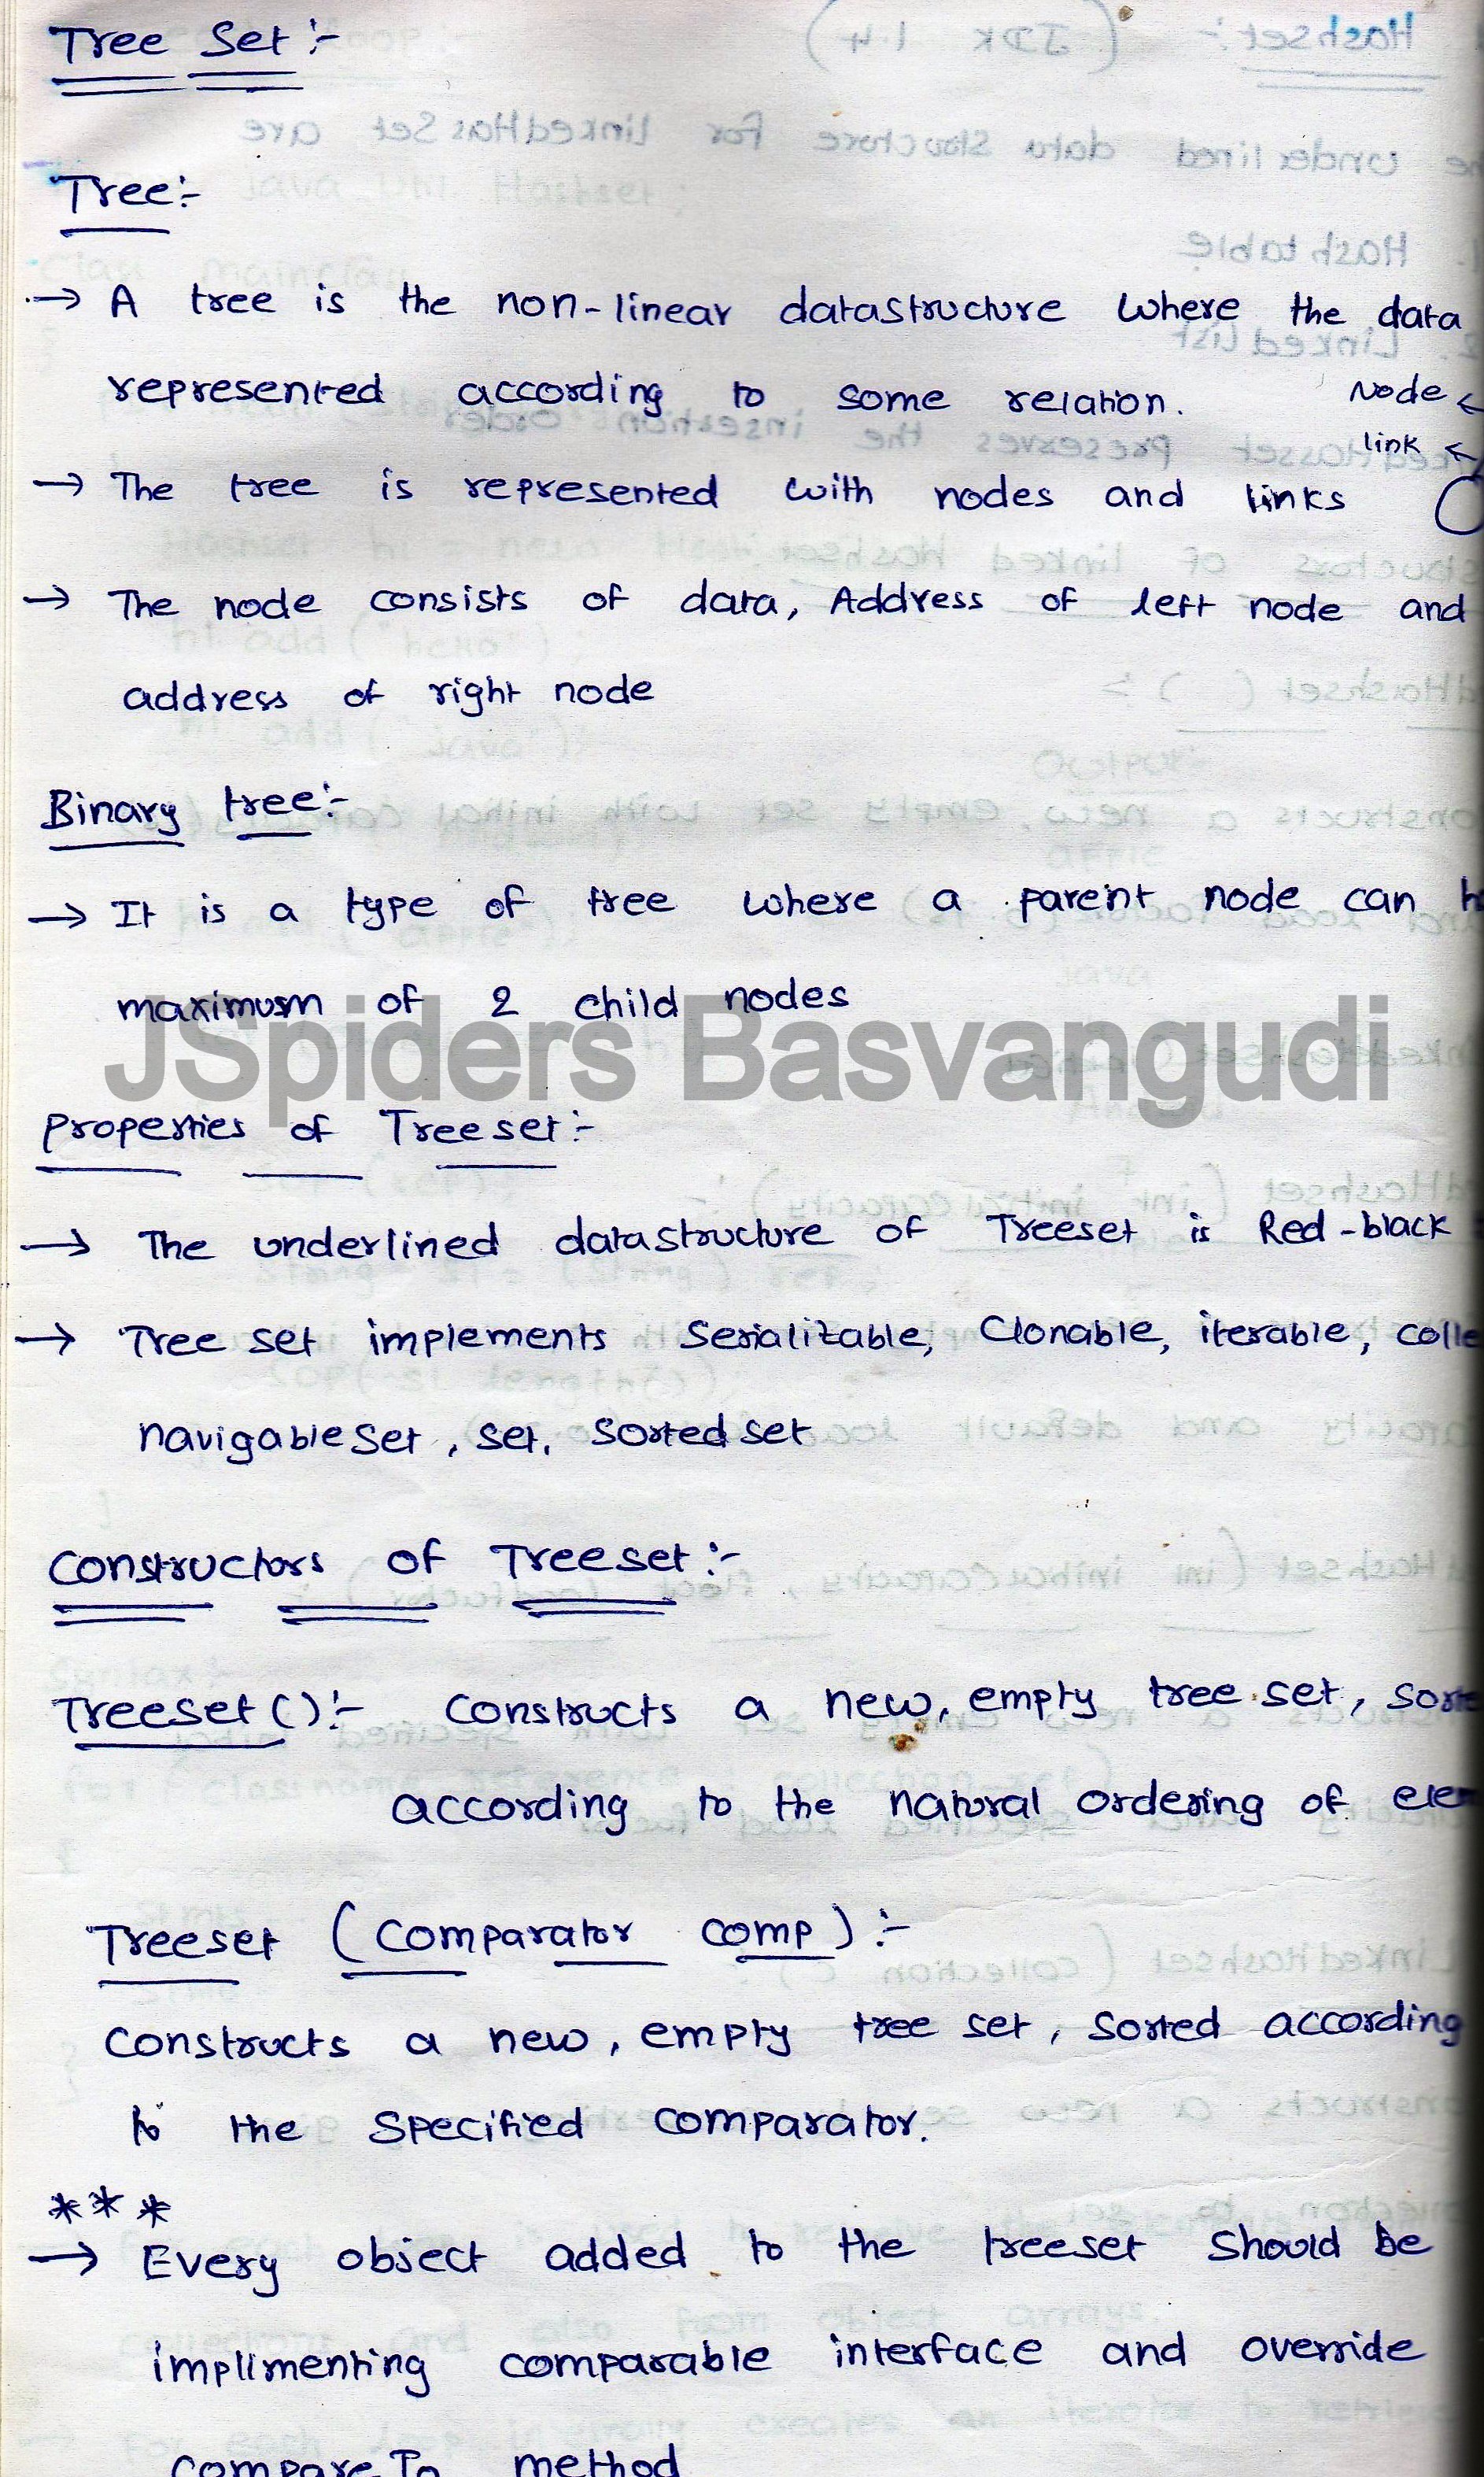 Tree Set :-
Tree:-
→ A tree is the non-linear datastructure where the data
represented according to some relation.
Node ←
link ←
→ The tree is represented with nodes and links
→ The node consists of data, Address of left node and
address of right node
Binary tree:-
→ It is a type of tree where a parent node can
maximum of 2 child nodes
JSpiders Basvangudi
properties of Treeset:-
→ The underlined datastructure of Treeset is Red-black
→ Tree set implements Serializable, Clonable, iterable, colle
navigableset, set, Sorted set
Constructors of Treeset:-
Treeset():- Constructs a new, empty tree set, sorte
according to the natural ordering of elem
Treeset (Comparator comp) :-
Constructs a new, empty tree set, sorted according
to the specified comparator.
***
→ Every object added to the treeset should be
implimenting comparable interface and override
compareTo method